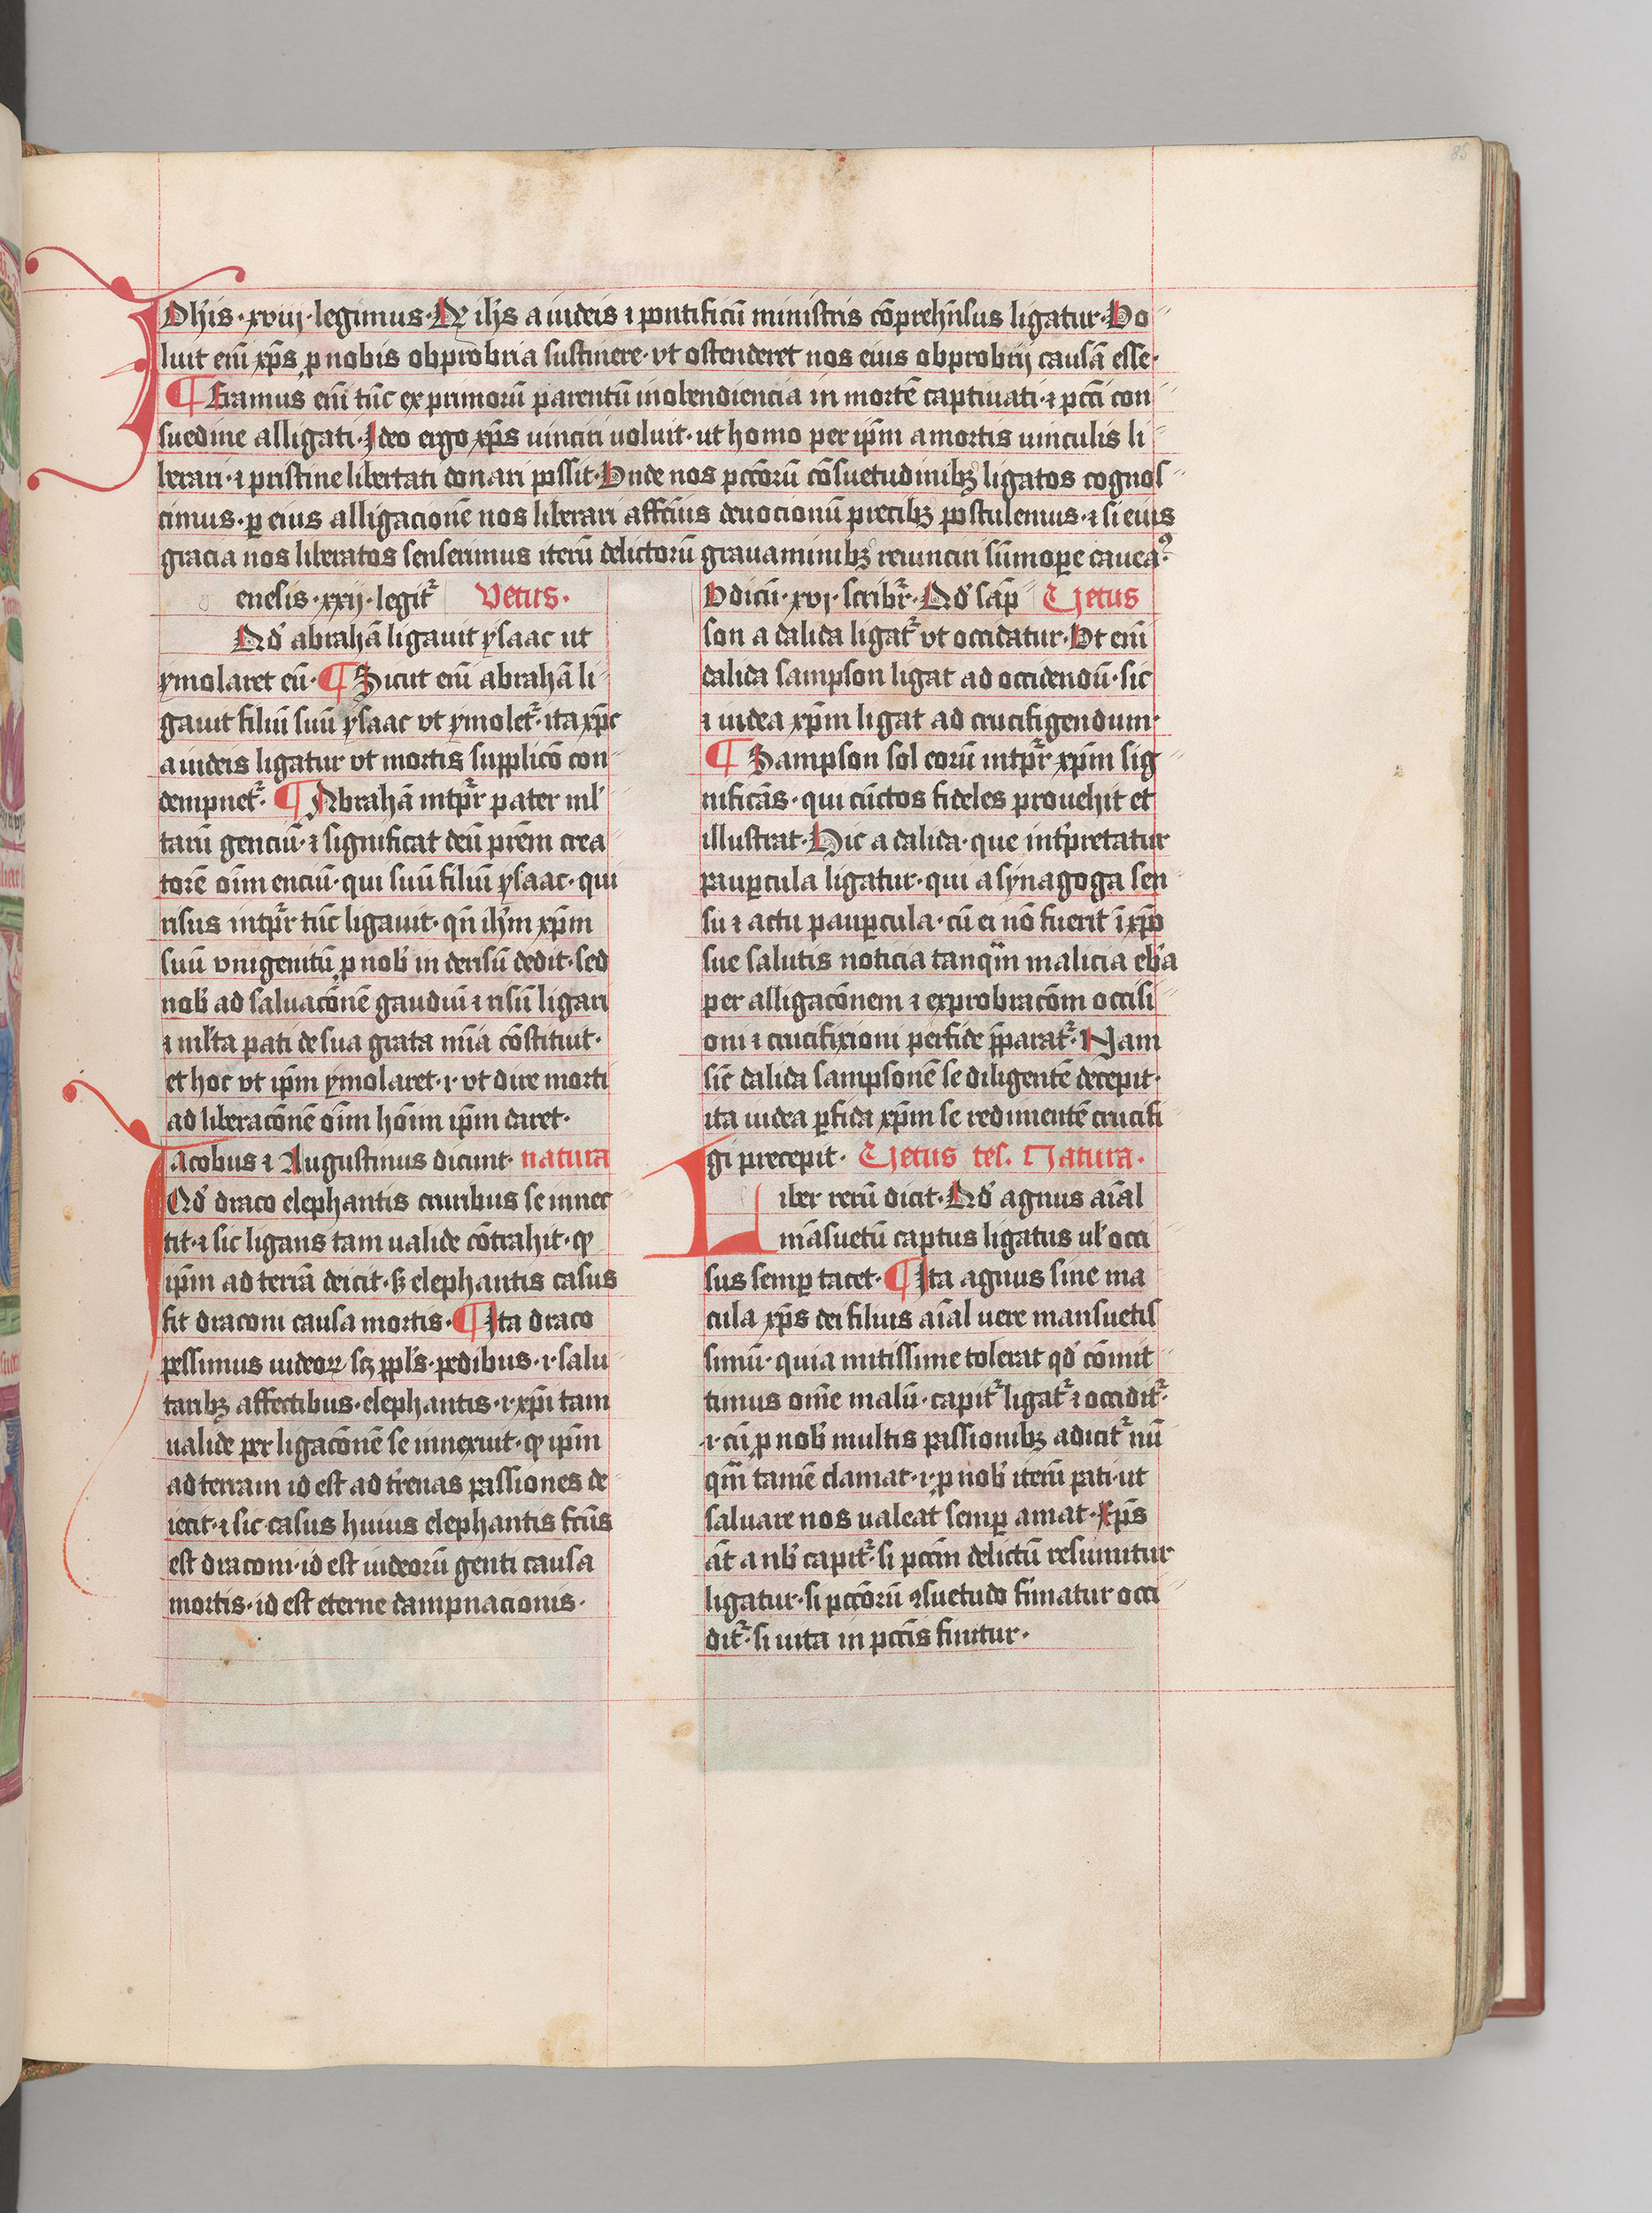 85
Johis · xviij · legimus · Qr ihs a iudeis ⁊ pontificū ministris cōprehēsus ligatur · Vo
luit eni xp̄s ꝓ nobis obprobria sustinere · vt ostenderet nos eius obprobrij causā esse ·
¶ Eramus eni tūc ex primorū parentū inobendiencia in mortē captiuati · ⁊ pctī con
suedine alligati · Ideo ergo xp̄s uinciri uoluit · ut homo per ipm̄ a mortis uinculis li
berari · ⁊ pristine libertati donari possit · Unde nos pctōrū cōsuetudinibꝫ ligatos cognos
cimus · ꝑ eius alligacionē nos liberari affcīus deuocionū precibꝫ postulemus · ⁊ si eius
gracia nos liberatos senserimus iterū delictorū grauaminibꝫ reuinciri sūmope cauea⁹ ·
enesis · xxij · legit᷑ Vetus ·
Qd̄ abrahā ligauit ysaac ut
ymolaret eū · ¶ Sicut eni abrahā li
gauit filiū suū ysaac vt ymolet᷑ · ita xp̄c
a iudeis ligatur vt mortis supplicō con
dempnet᷑ · ¶ Abrahā intp̄r pater ml̄
tarū genciū · ⁊ significat deū prēm crea
torē oīm enciū · qui suū filiū ysaac · qui
risus intp̄r tūc ligauit · qn̄ ihm̄ xp̄m
suū vnigenitū ꝓ nob̄ in derisū dedit · sed
nob̄ ad saluacōnē gaudiū ⁊ risū ligari
⁊ ml̄ta pati de sua grata mīa cōstituit ·
et hoc vt ipm̄ ymolaret · i · vt dire morti
ad liberacōnē oīm hoīm ipm̄ daret ·
Jacobus ⁊ Augustinus dicunt · natura
Qd̄ draco elephantis cruribus se innec
tit · ⁊ sic ligans tam ualide cōtrahit · qr
ipm̄ ad terrā deicit · sꝫ elephantis casus
fit draconi causa mortis · ¶ Ita draco
pessimus iudeoꝝ scꝫ ppl̄s · pedibus · i · salu
taribꝫ affectibus · elephantis · i · xp̄i tam
ualide per ligacōnē se innexuit · qr ipm̄
ad terram id est ad tr̄enas passiones de
iecit · ⁊ sic casus huius elephantis fcūs
est draconi · id est iudeorū genti causa
mortis · id est eterne dampnacionis ·
Udicū · xvj · scribr᷑ · Qd̄ sāp Vetus
son a dalida ligat᷑ vt occidatur · Ut eni
dalida sampson ligat ad occidendū · sic
⁊ iudea xp̄m ligat ad crucifigendum ·
¶ Sampson sol eorū intp̄r xp̄m sig
nificās · qui cūctos fideles prouehit et
illustrat · Hic a dalida · que int̄pretatur
paupcula ligatur · qui a synagoga sen
su ⁊ actu paupcula · cū ei nō fuerit ī xp̄o
sue salutis noticia tanqm̄ malicia eb̄a
per alligacōnem ⁊ exprobracōm occisi
oni ⁊ crucifixioni perfide pp̄arat᷑ · Nam
sic̄ dalida sampsonē se diligentē decepit ·
ita iudea ꝑfida xp̄m se redimentē crucifi
gi precepit · Vetus tes. Natura ·
Liber rerū dicit · Qd̄ agnus aīal
māsuetū captus ligatus ul̄ occi
sus semp tacet · ¶ Ita agnus sine ma
cula xp̄s dei filius aīal uere mansuetis
simū · quia mitissime tolerat qd̄ cōmit
timus om̄e malū · capit᷑ ligat᷑ ⁊ occidit᷑ ·
· i · cū ꝓ nob̄ multis passionibꝫ adicit᷑ nū
qm̄ tamē clamat · i · ꝓ nob̄ iterū pati · ut
saluare nos ualeat semp amat · Xp̄s
āt a nb̄ capit᷑ · si pctm̄ delictū resumitur
ligatur · si pctōrū ꝯsuetudo firmatur occi
dit᷑ · si uita in pctīs finitur ·